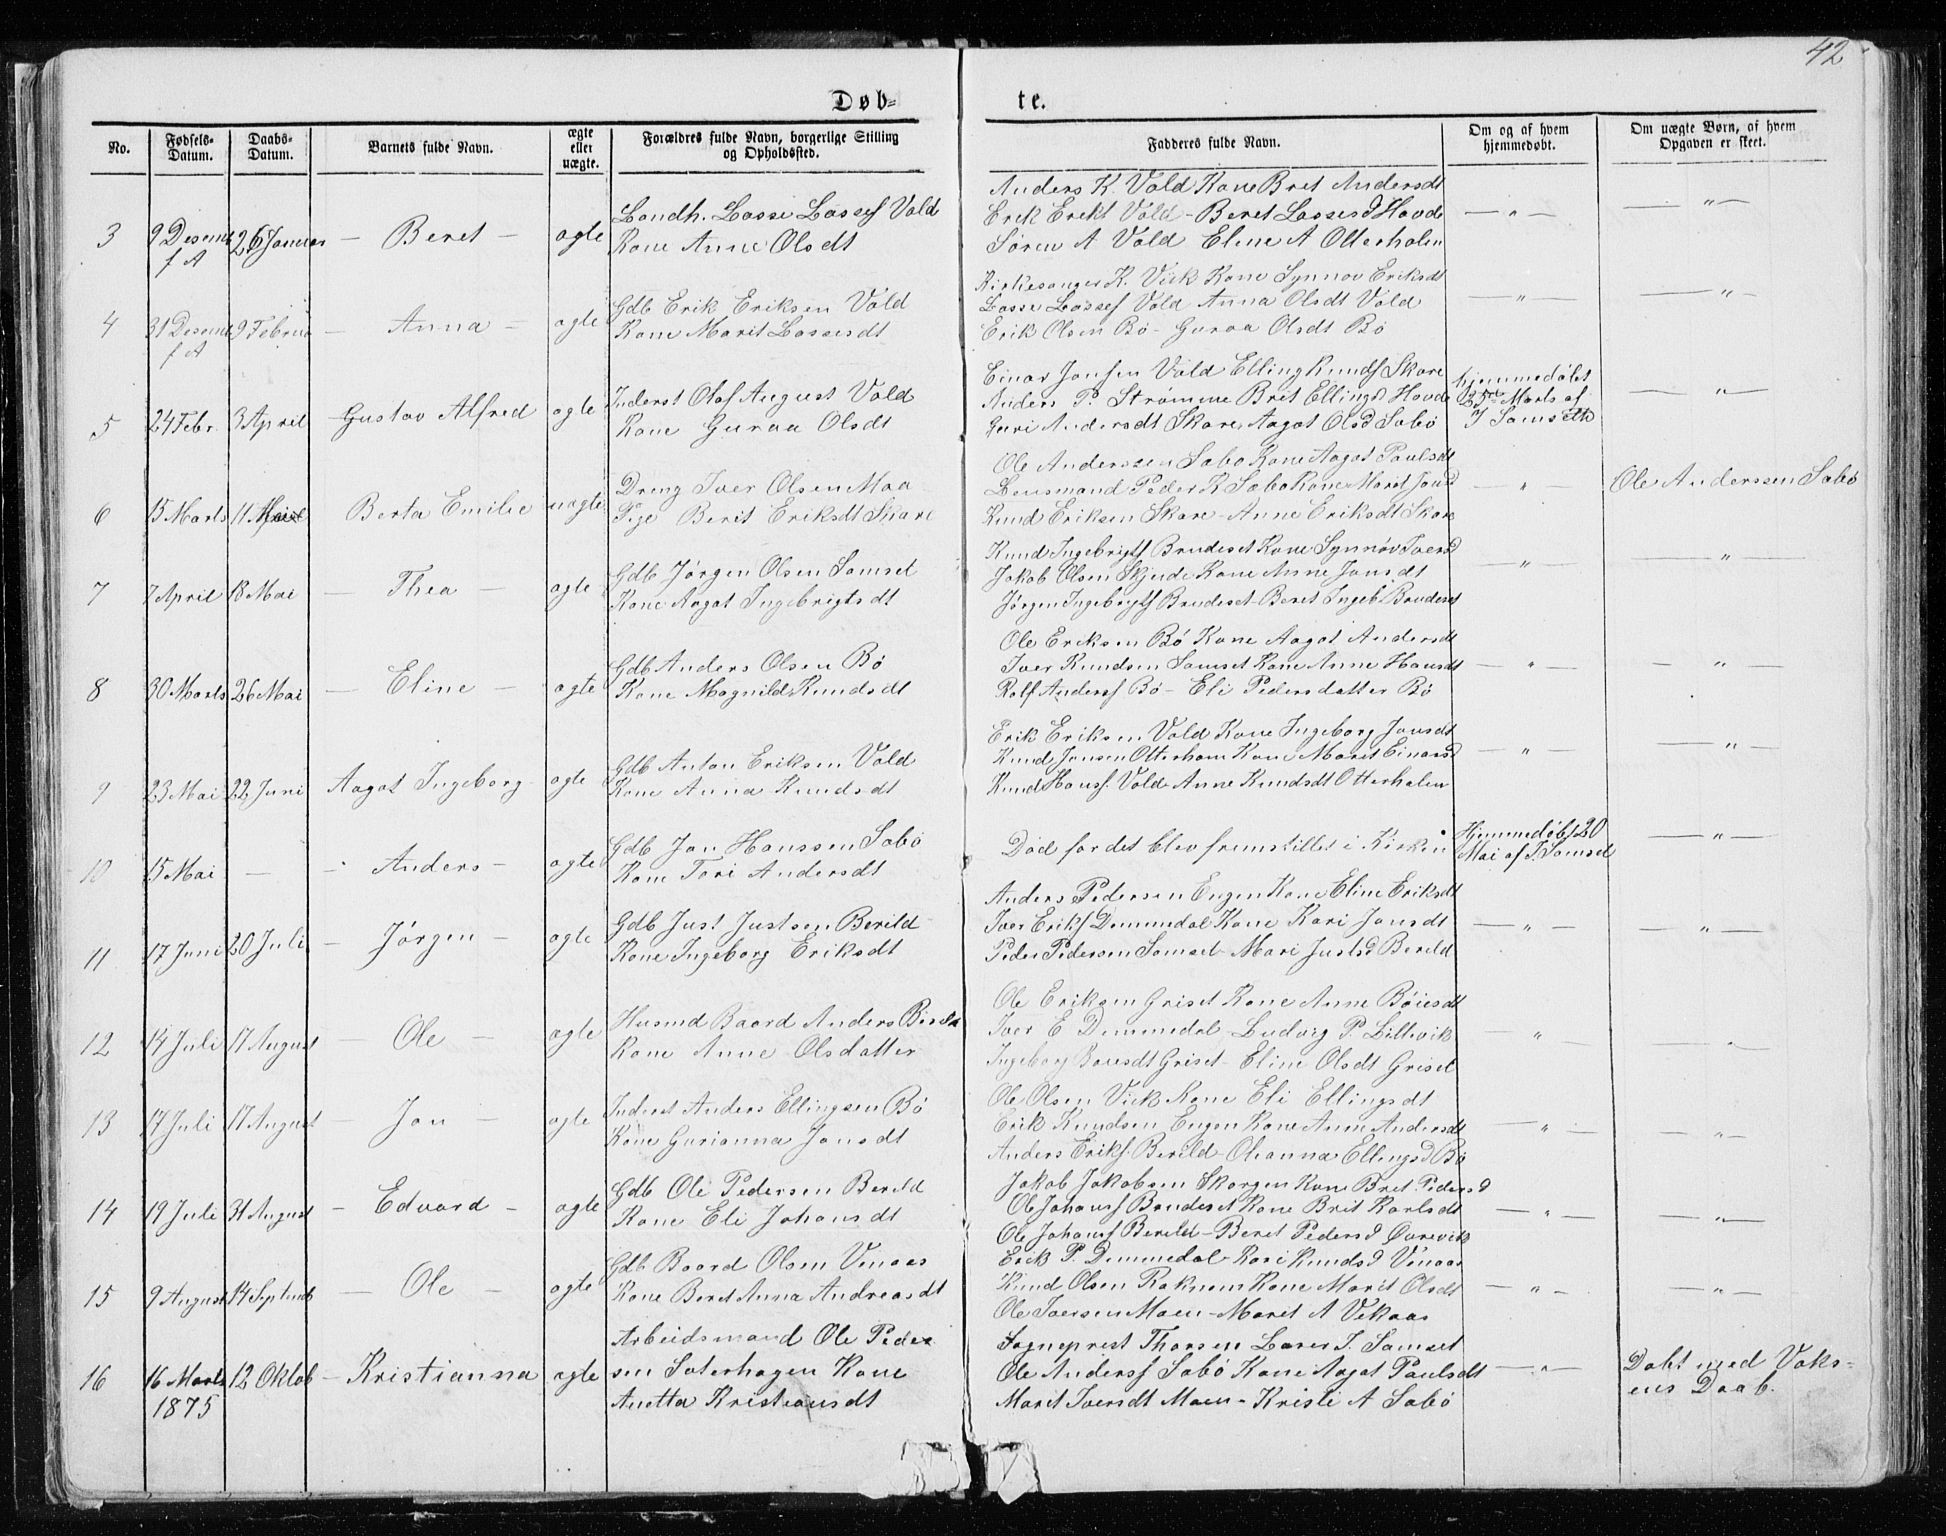 42
Døb=
te.
No.
Fødsels-
Datum.
Daabs-
Datum.
Barnets fulde Navn.
ægte
eller
uægte.
Forældres fulde Navn, borgerlige Stilling
og Opholdssted.
Fadderes fulde Navn.
Om og af hvem
hjemmedøbt.
Om uægte Børn, af hvem
Opgaven er skeet.
3
9 Desemb
f A
26 Januar
– Beret –
ægte
Landh. Lasse Lassef Vold
Kone Anne Olsdt
Anders K. Vold Kone Bret Andersdt
Erik Erikf Vold – Beret Lassesd Hovde
Søren A Vold Eline A Otterholm
— „ —
— „ —
4
31 Desemb
f A
9 Februa
– Anna –
ægte
Gdb Erik Eriksen Vold
Kone Marit Lassesdt
Kirkesanger K. Vik Kone Synnøv Eriksdt
Lasse Lassef Vold Anna Olsdt Vold
Erik Olsen Bø – Guraa Olsdt Bø
— „ —
— „ —
5
24 Febr.
3 April
Gustav Alfred
ægte
Inderst Olaf August Vold
Kone Guraa Olsdt
Einar Jonsen Vold Elling Knudf Skare
Anders P. Strømme Bret Ellingsd Hovde
Guri Andersdt Skare, Aagot Olsd Sæbø
hjemmedøbt
25de Marts af
J Samseth
— „ —
6
15 Marts
11
Berta Emilie
uægte
Dreng Iver Olsen Maa
Pige Berit Eriksdt Skare
Ole Anderssen Sæbø Kone Aagot Paulsdt
Lensmand Peder K Sæbø Kone Maret Jonsd
Knud Eriksen Skare – Anne Eriksdt Skare
— „ —
Ole Anderssen Sæbø
7
7 April
18 Mai
– Thea –
ægte
Gdb Jørgen Olsen Samset
Kone Aagot Ingebrigtsdt
Knud Ingebrigtf Bruaset Kone Synnøv Iversd
Jakob Olsen Skjende Kone Anne Jonsdt
Jørgen Ingebrigtf Brudeset – Beret Ingeb. Bruaset
— „ —
— „ —
8
30 Marts
26 Mai
– Eline –
ægte
Gdb Anders Olsen Bø
Kone Magnild Knudsdt
Ole Eriksen Bø Kone Aagot Andersdt
Iver Knudsen Samset Kone Anne Hansdt
Rolf Andersf Bø – Eli Pedersdatter Bø
— „ —
— „ —
9
23 Mai
22 Juni
Aagot Ingeborg
ægte
Gdb Anton Eriksen Vold
Kone Anna Knudsdt
Erik Eriksen Vold Kone Ingeborg Jonsdt
Knud Jonsen Otterholm Kone Maret Einarsd
Knud Hansf. Vold – Anne Knudsdt Otterholm
— „ —
— „ —
10
15 Mai
—
– Anders –
ægte
Gdb Jon Hanssen Sæbø
Kone Tori Andersdt
Død før det blev fremstillet i Kirken
Hjemmedøbt 20
Mai af J. Samset
— „ —
11
17 Juni
20 Juli
– Jørgen –
ægte
Gdb Just Justsen Berild
Kone Ingeborg Eriksdt
Anders Pedersen Engen Kone Eline Eriksdt
Iver Erikf Demmedal Kone Kari Jonsdt
Peder Pedersen Samset – Mari Justsd Berild
— „ —
— „ —
12
14 Juli
17 August
– Ole –
ægte
Husmd Baard Anders Berild
Kone Anne Olsdatter
Ole Eriksen Griset Kone Anne Bøiesdt
Iver E Demmedal – Ludvig P. Lillevik
Ingeborg Knudsdt Griset – Eline Olsdt Griset
— „ —
— „ —
13
17 Juli
17 August
– Jon –
ægte
Inderst Anders Ellingsen Bø
Kone Gurianna Jonsdt
Ole Olsen Vik Kone Eli Ellingsdt
Erik Knudsen Engen Kone Anne Andersdt
Anders Erikf. Berild – Oleanna Ellingsd Bø
— „ —
— „ —
14
19 Juli
31 August
– Edvard –
ægte
Gdb Ole Pedersen Berild
Kone Eli Johansdt
Jakob Jakobsen Skorgen Kone Bret Pedersd
Ole Johansf Bruaset Kone Brit Karlsdt
Ole Johansf Berild – Beret Pedersd Øverevik
— „ —
— „ —
15
9 August
14 Septemb
– Ole –
ægte
Gdb Baard Olsen Venaas
Kone Beret Anna Andreasdt
Erik P. Demmedal – Kari Knudsd Venaas
Knud Olsen Raknem Kone Marit Olsdt
Ole Iversen Moen – Marit A Vekaas
— „ —
— „ —
16
16 Marts
1875
12 Oktob
– Kristianna
ægte
Arbeidsmand Ole Peder
sen Sæterhagen Kone
Anetta Kristiansdt
Sogneprest Thorsen Lærer J. Samset
Ole Andersf Sæbø Kone Aagot Paulsdt
Maret Iversdt Moen – Kristi A Sæbø
— „ —
Døbt med Voks-
ens Daab.